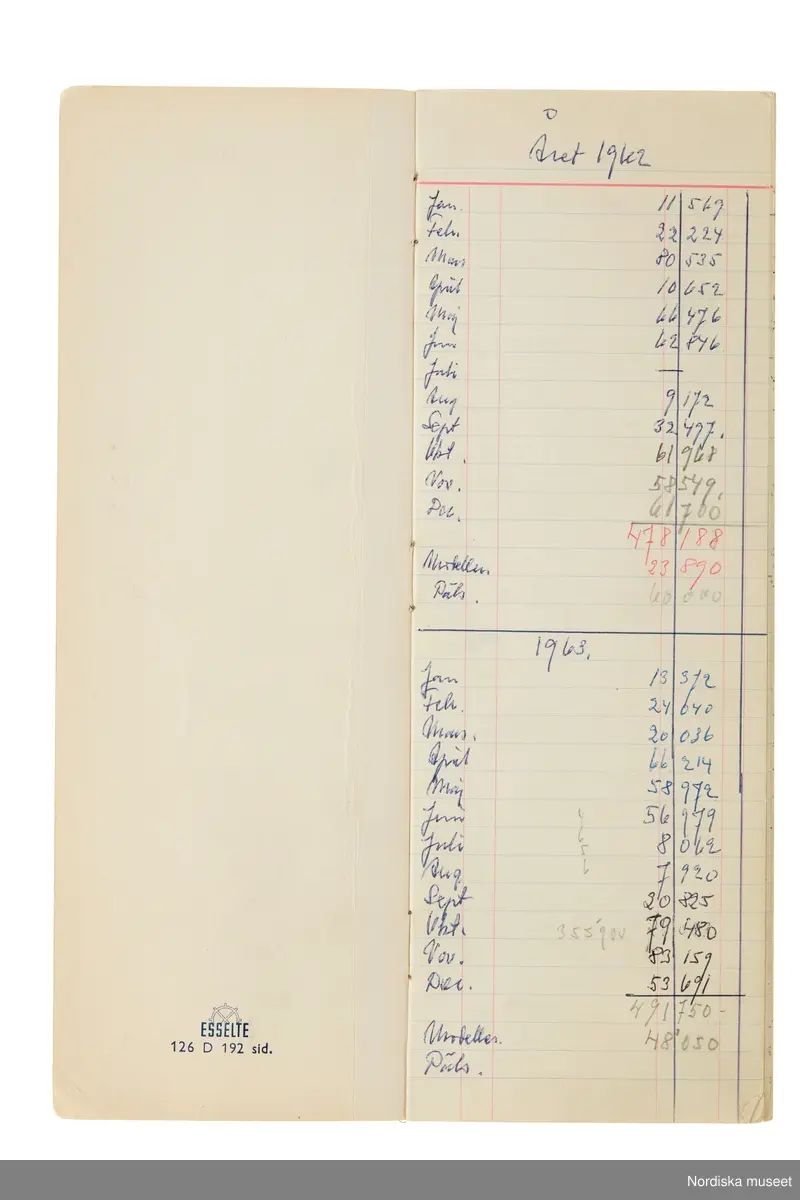 ESSELTE
126 D 192 sid.
Året 1962
Jan. 11 569
Febr. 22 224
Mars 80 535
April 10 652
Maj 66 476
Juni 62 846
Juli —
Aug 9 172
Sept 32 497.
Okt. 61 968
Nov. 58 549.
Dec. 61 700
478 188
Modeller. 23 890
Päls. 60 000
1963.
Jan 13 372
Febr. 24 040
Mars. 20 036
April 66 214
Maj 58 972
Juni 56 979
Juli 8 062
Aug 7 920
Sept 20 825
Okt. 79 480
Nov. 83 159
Dec. 53 691
491 750-
Modeller. 48 050
Päls.
Nordiska museet